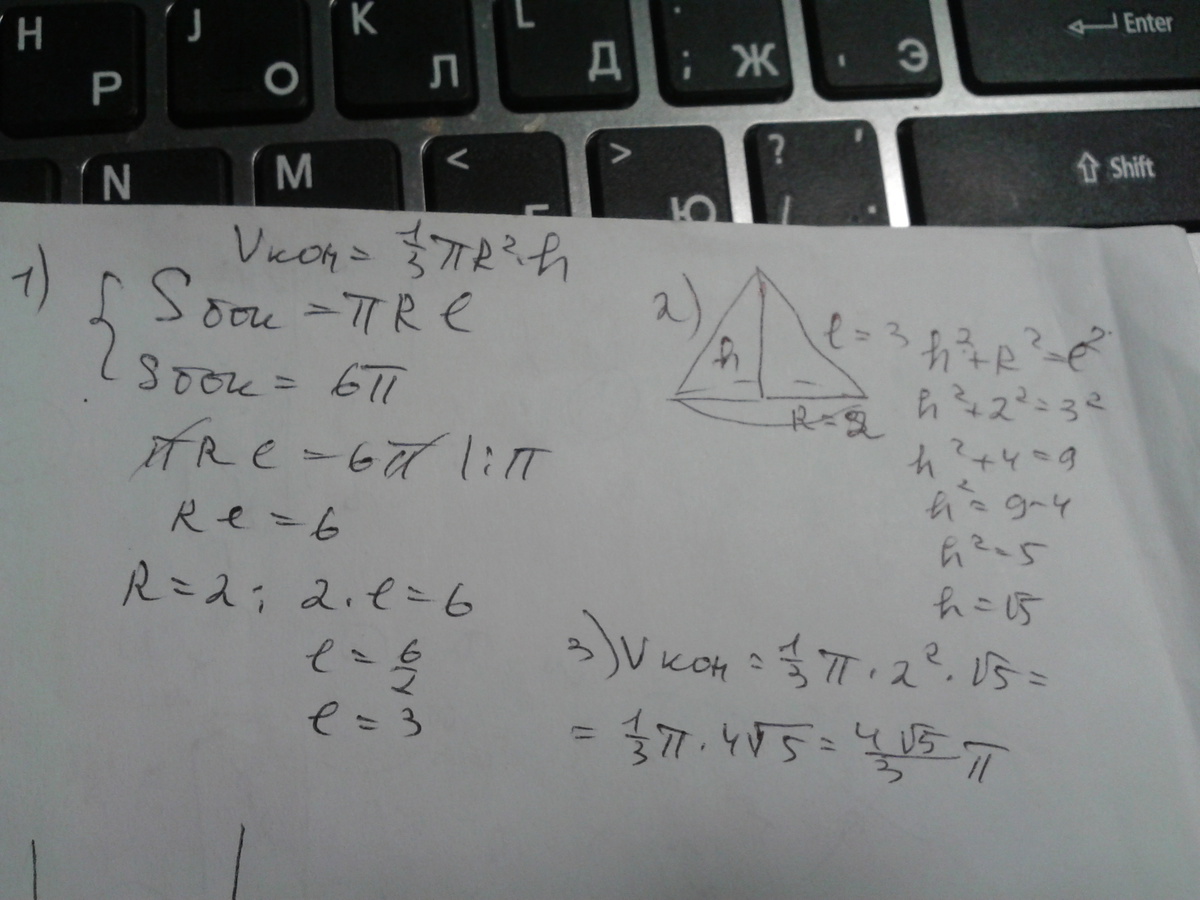 H Р J О K Л L Д ; Ж ' Э Enter
N M < > Ю ? ' / . Shift
1) Vкон = 1/3 πR²·h
Sбок = πRl
Sбок = 6π
πRl = 6π |:π
Rl = 6
R = 2; 2·l = 6
l = 6/2
l = 3
2) h l = 3 R = 2
h² + R² = l²
h² + 2² = 3²
h² + 4 = 9
h² = 9 - 4
h² = 5
h = √5
3) Vкон = 1/3 π · 2² · √5 =
= 1/3 π · 4√5 = 4√5/3 π